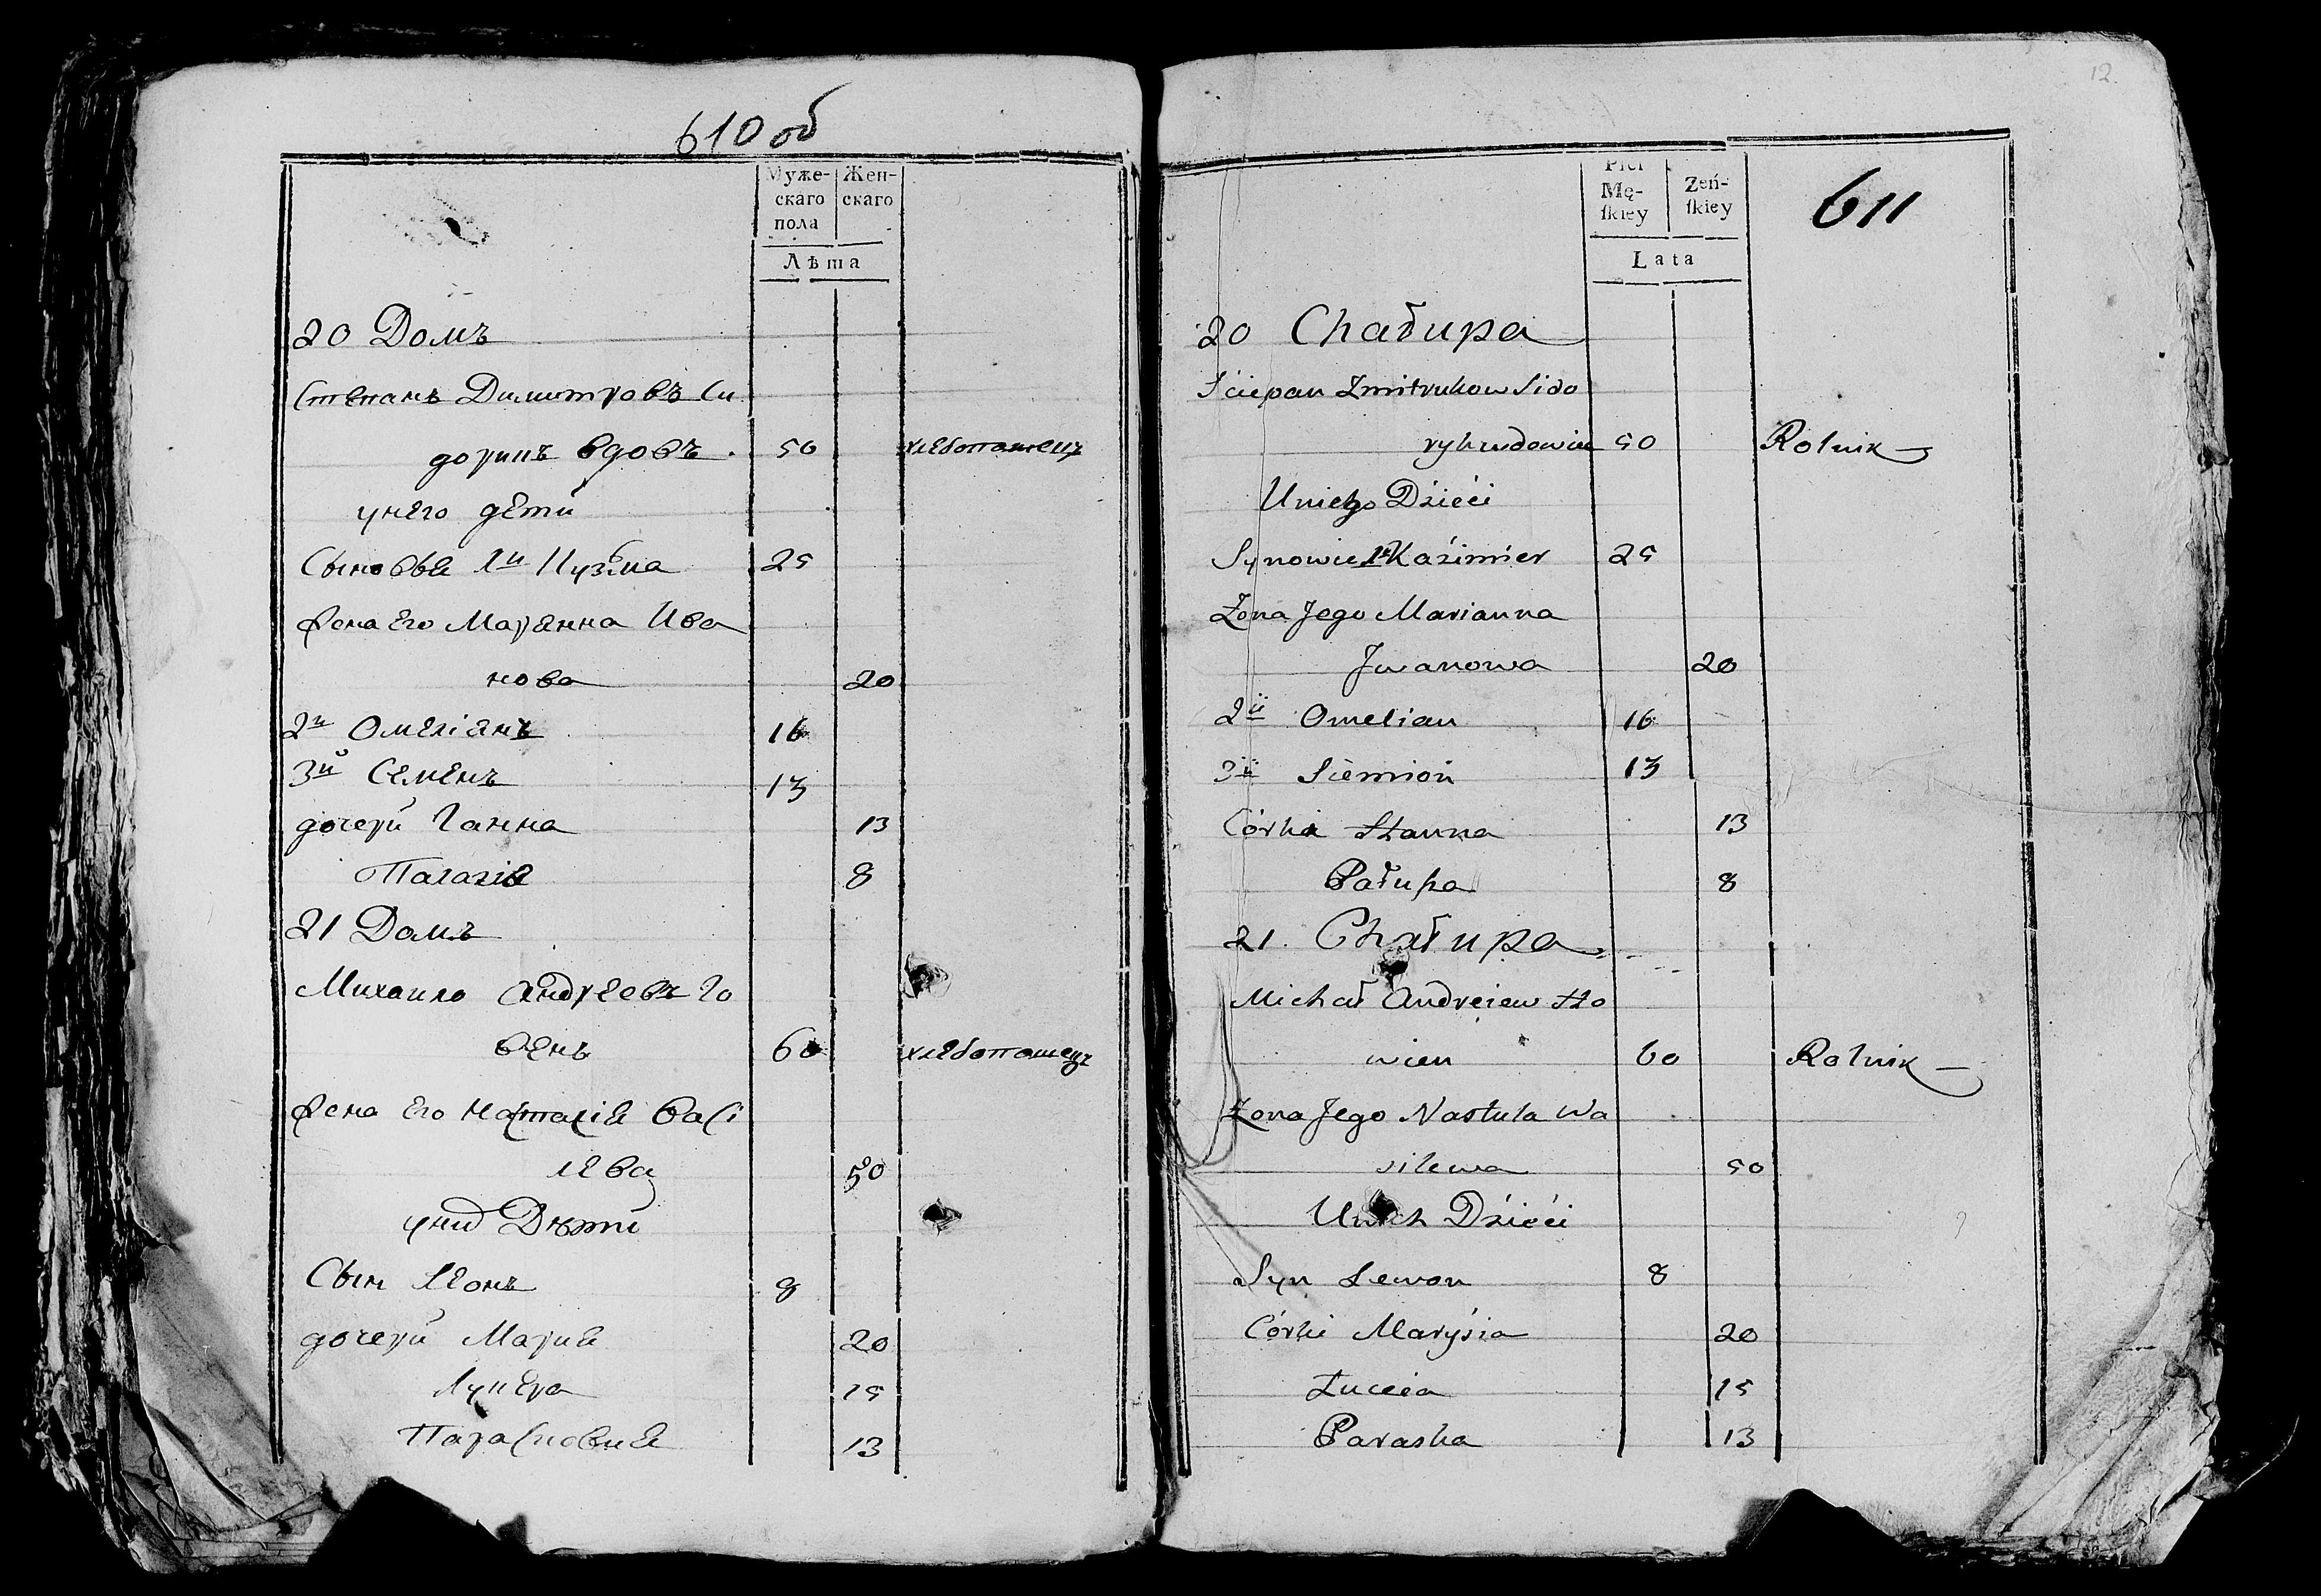 610 об
Муже-
скаго
пола
Жен-
скаго
Лѣта
20 Домъ
Степанъ Димитровъ Си
доринъ вдовъ . 50 хлебопашецъ
унего дети
Сыновья 1й Кузма 25
Жена его Маряна Ива
нова 20
2й Омелiянъ 16
3й Семенъ 13
дочери Ганна 13
Палагiя 8
21 Домъ
Михаило Андреевъ Го
венъ 60 хлебопашецъ
Жена его Насталiя Васi
лева 50
Дѣти
Сын Леонъ 8
дочери Мария 20
15
Парасковия 13
12.
611
Płci
Mę-
ſkiey
Zeń-
ſkiey
Lata
20 Chałupa
Sciepan Zmitrukow Sido
50 Rolnik
Uniego Dzieci
Synowie 1y Kaźimier 25
Zona Jego Marianna
Jwanowa 20
2ii Omelian 16
3ii Siemion 13
Córki Hanna 13
8
21. Chałupa
Michał Andreiew Ho
wien 60 Rolnik
Zona Jego Nastula Wa
silewa 50
Unich Dzieci
Syn Lewon 8
Córki Marysia 20
Łuceia 15
Paraska 13